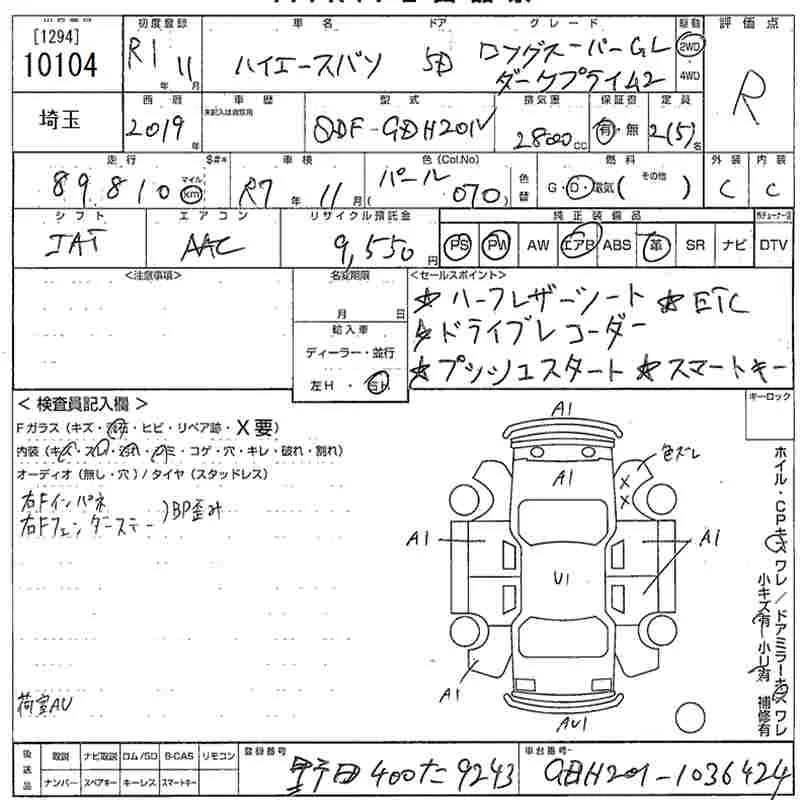 [1294]
10104
初度登録
車名
ドア
グレード
駆動
評価点
R1 年 11 月
ハイエースバン
5D
ロングスーパーGL
ダークプライム2
2WD
4WD
R
埼玉
西暦
車歴
型式
排気量
保証書
定員
2019 年
未記入は自家用
QDF-GDH201V
2800 cc
有・無
2(5) 名
走行
S#*
車検
色(Col.No)
燃料
外装
内装
89810
マイル
km
R7 年 11 月
パール
( 070 )
色替
G・D・電気( その他 )
C
C
シフト
エアコン
リサイクル預託金
純正装備品
IAT
AAC
9,550 円
PS
PW
AW
エアB
ABS
革
SR
ナビ
DTV
<注意事項>
名変期限
月 日
輸入車
ディーラー・並行
左H・右H
<セールスポイント>
☆ハーフレザーシート ☆ETC
☆ドライブレコーダー
☆プッシュスタート ☆スマートキー
<検査員記入欄>
キーロック
Fガラス(キズ・飛石・ヒビ・リペア跡・X要)
内装(キズ・スレ・汚れ・シミ・コゲ・穴・キレ・破れ・割れ)
オーディオ(無し・穴)/タイヤ(スタッドレス)
右Fインパネ
右Fフェンダーステー
)BP歪み
荷室AU
A1
A1
色ズレ
X
X
A1
A1
U1
A1
AU1
ホイル・CPキズ ワレ/ドアミラーキズ ワレ
小キズ有 小凹有 補修有
後送品
取説
ナビ取説
ロム/SD
B-CAS
リモコン
ナンバー
スペアキー
キーレス
スマートキー
登録番号
野田 400 た 9243
車台番号
GDH201-1036424